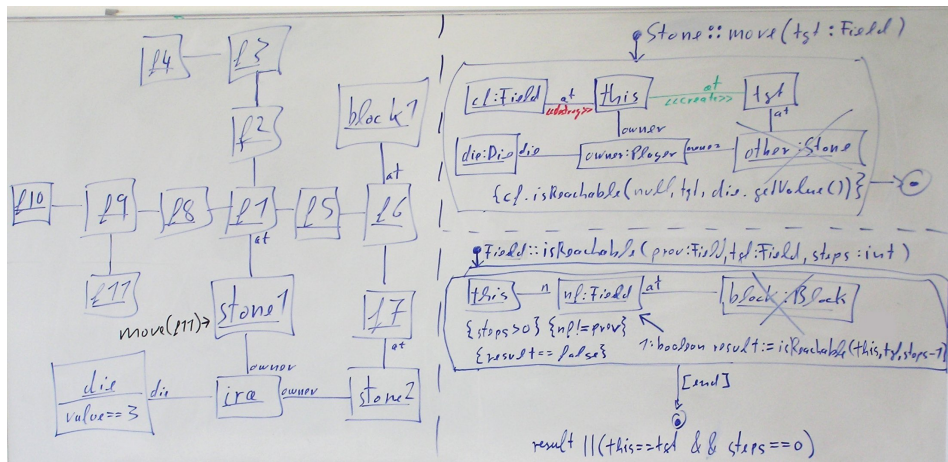 f4
f3
f2
block1
at
f10
f9
f8
f1
f5
f6
at
f11
stone1
f7
move(f11)→
at
owner
die
value==3
die
ira
owner
stone2
Stone::move(tgt:Field)
cf:Field
at
<<destroy>>
this
at
<<create>>
tgt
owner
at
die:Die
die
owner:Player
owner
other:Stone
{cf.isReachable(null,tgt,die.getValue())}
Field::isReachable(prov:Field,tgt:Field,steps:int)
this
n
nf:Field
at
block:Block
{steps>0} {nf!=prov}
{result==false}
1:boolean result:=isReachable(this,tgt,steps-1)
[end]
result ||(this==tgt && steps==0)